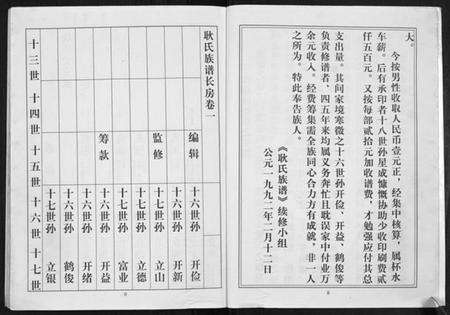 大。
今按男性收取人民币壹元正，经集中核算，属杯水
车薪。后有承印者十八世孙星成慷慨协助少收印刷费贰
仟五百元。又按每部贰拾元加收谱费，才勉强应付其总
支出量。其间家境寒微之十六世孙开俭、开益、鹤俊等
负责修谱者，四五年来均属义务奔忙且耽误家中付业万
余元收入。经费筹集需全族同心合力方有成就，非一人
之所为。特此奉告族人。
《耿氏族谱》续修小组
公元一九九二年二月十二日
耿氏族谱长房卷一
编辑 十六世孙 开俭
十六世孙 开新
监修 十七世孙 立山
十七世孙 立德
十七世孙 富业
筹款 十六世孙 开益
十六世孙 开绪
十六世孙 鹤俊
十七世孙 立银
十三世 十四世 十五世 十六世 十七世